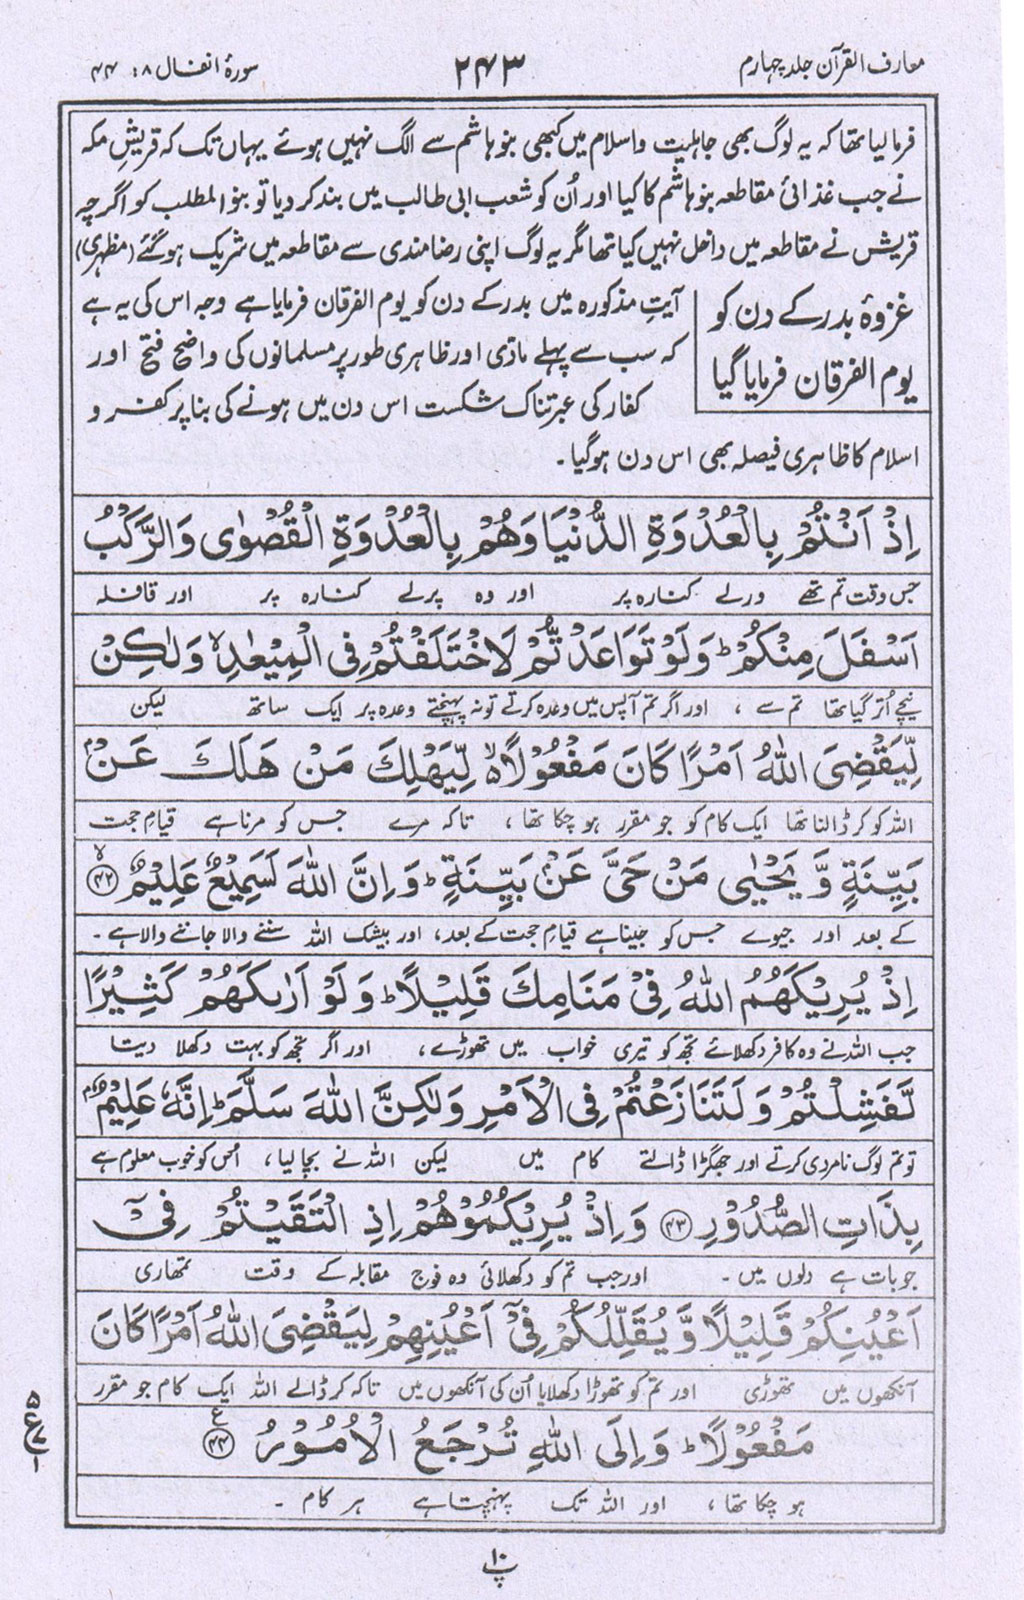 معارف القرآن جلد چہارم
۲۴۳
سورۂ انفال ۸: ۴۴
فرمایا تھا کہ یہ لوگ بھی جاہلیت و اسلام میں کبھی بنو ہاشم سے الگ نہیں ہوئے یہاں تک کہ قریشِ مکہ
نے جب غذائی مقاطعہ بنو ہاشم کا کیا اور اُن کو شعب ابی طالب میں بند کر دیا تو بنو المطلب کو اگرچہ
قریش نے مقاطعہ میں داخل نہیں کیا تھا مگر یہ لوگ اپنی رضامندی سے مقاطعہ میں شریک ہو گئے (مظہری)
غزوۂ بدر کے دن کو
یوم الفرقان فرمایا گیا
آیتِ مذکورہ میں بدر کے دن کو یوم الفرقان فرمایا ہے وجہ اس کی یہ ہے
کہ سب سے پہلے مادّی اور ظاہری طور پر مسلمانوں کی واضح فتح اور
کفار کی عبرتناک شکست اس دن میں ہونے کی بنا پر کفر و
اسلام کا ظاہری فیصلہ بھی اس دن ہو گیا۔
اِذْ اَنْتُمْ بِالْعُدْوَةِ الدُّنْيَا وَهُمْ بِالْعُدْوَةِ الْقُصْوٰى وَالرَّكْبُ
جس وقت تم تھے ورلے کنارہ پر اور وہ پرلے کنارہ پر اور قافلہ
اَسْفَلَ مِنْكُمْ ؕ وَلَوْ تَوَاعَدْتُّمْ لَاخْتَلَفْتُمْ فِى الْمِيْعٰدِ ۙ وَلٰكِنْ
نیچے اُتر گیا تھا تم سے ، اور اگر تم آپس میں وعدہ کرتے تو نہ پہنچتے وعدہ پر ایک ساتھ لیکن
لِّيَقْضِىَ اللّٰهُ اَمْرًا كَانَ مَفْعُوْلًا ۙ لِّيَهْلِكَ مَنْ هَلَكَ عَنْۢ
اللہ کو کر ڈالنا تھا ایک کام کو جو مقرر ہو چکا تھا ، تاکہ مرے جس کو مرنا ہے قیامِ حجت
بَيِّنَةٍ وَّ يَحْيٰى مَنْ حَىَّ عَنْۢ بَيِّنَةٍ ؕ وَاِنَّ اللّٰهَ لَسَمِيْعٌ عَلِيْمٌ ۙ ﴿۴۲﴾
کے بعد اور جیوے جس کو جینا ہے قیامِ حجت کے بعد، اور بیشک اللہ سننے والا جاننے والا ہے ۔
اِذْ يُرِيْكَهُمُ اللّٰهُ فِىْ مَنَامِكَ قَلِيْلًا ؕ وَلَوْ اَرٰىكَهُمْ كَثِيْرًا
جب اللہ نے وہ کافر دکھلائے تجھ کو تیری خواب میں تھوڑے ، اور اگر تجھ کو بہت دکھلا دیتا
لَّفَشِلْتُمْ وَلَتَنَازَعْتُمْ فِى الْاَمْرِ وَلٰكِنَّ اللّٰهَ سَلَّمَ ؕ اِنَّهٗ عَلِيْمٌۢ
تو تم لوگ نامردی کرتے اور جھگڑا ڈالتے کام میں لیکن اللہ نے بچا لیا ، اُس کو خوب معلوم ہے
بِذَاتِ الصُّدُوْرِ ﴿۴۳﴾ وَاِذْ يُرِيْكُمُوْهُمْ اِذِ الْتَقَيْتُمْ فِىْۤ
جو بات ہے دلوں میں ۔ اور جب تم کو دکھلائی وہ فوج مقابلہ کے وقت تمھاری
اَعْيُنِكُمْ قَلِيْلًا وَّيُقَلِّلُكُمْ فِىْۤ اَعْيُنِهِمْ لِيَقْضِىَ اللّٰهُ اَمْرًا كَانَ
آنکھوں میں تھوڑی اور تم کو تھوڑا دکھلایا اُن کی آنکھوں میں تاکہ کر ڈالے اللہ ایک کام جو مقرر
مَفْعُوْلًا ؕ وَاِلَى اللّٰهِ تُرْجَعُ الْاُمُوْرُ ﴿۴۴﴾ ع
ہو چکا تھا ، اور اللہ تک پہنچتا ہے ہر کام ۔
پ ۱۰